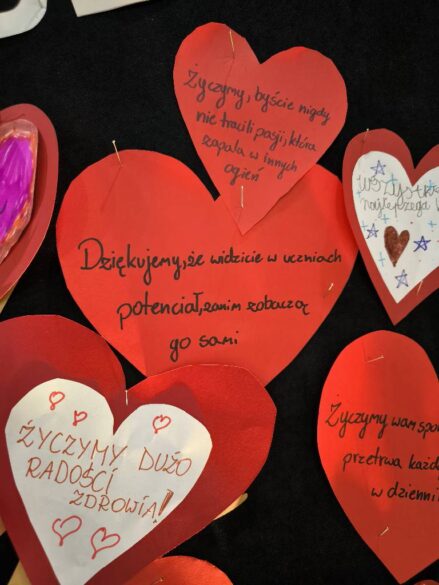 Życzymy, byście nigdy
nie tracili pasji, która
zapala w innych
ogień
Dziękujemy, że widzicie w uczniach
potencjał, zanim zobaczą
go sami
ŻYCZYMY DUŻO
RADOŚCI
ZDROWIA!
Życzymy wam
przetrwa
w